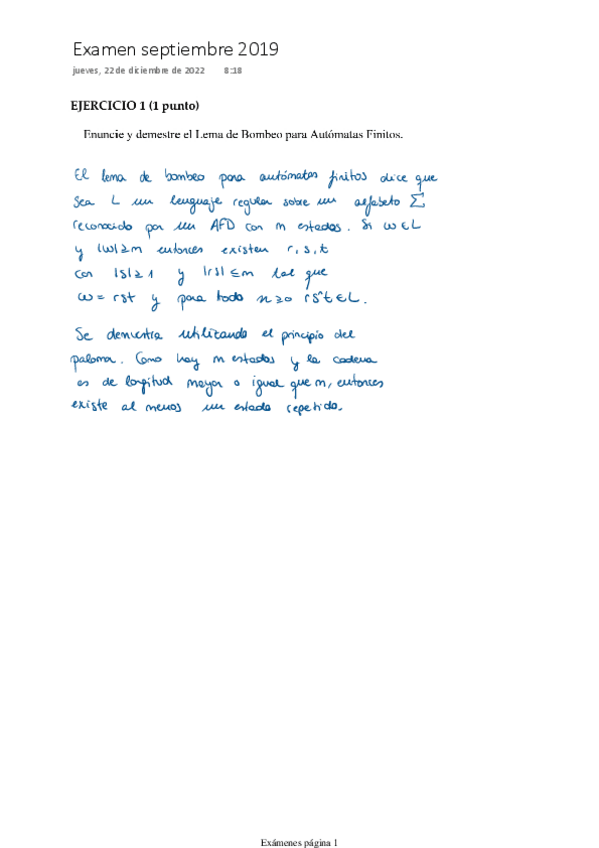 Examen septiembre 2019
jueves, 22 de diciembre de 2022 8:18
EJERCICIO 1 (1 punto)
Enuncie y demestre el Lema de Bombeo para Autómatas Finitos.
El lema de bombeo para autómatas finitos dice que
Sea L un lenguaje regular sobre un alfabeto Σ
reconocido por un AFD con m estados. Si ω ∈ L
y |ω| ≥ m entonces existen r, s, t
con |s| ≥ 1 y |rs| ≤ m tal que
ω = rst y para todo n ≥ 0 rsⁿt ∈ L.
Se demuestra utilizando el principio del
paloma. Como hay m estados y la cadena
es de longitud mayor o igual que m, entonces
existe al menos un estado repetido.
Exámenes página 1